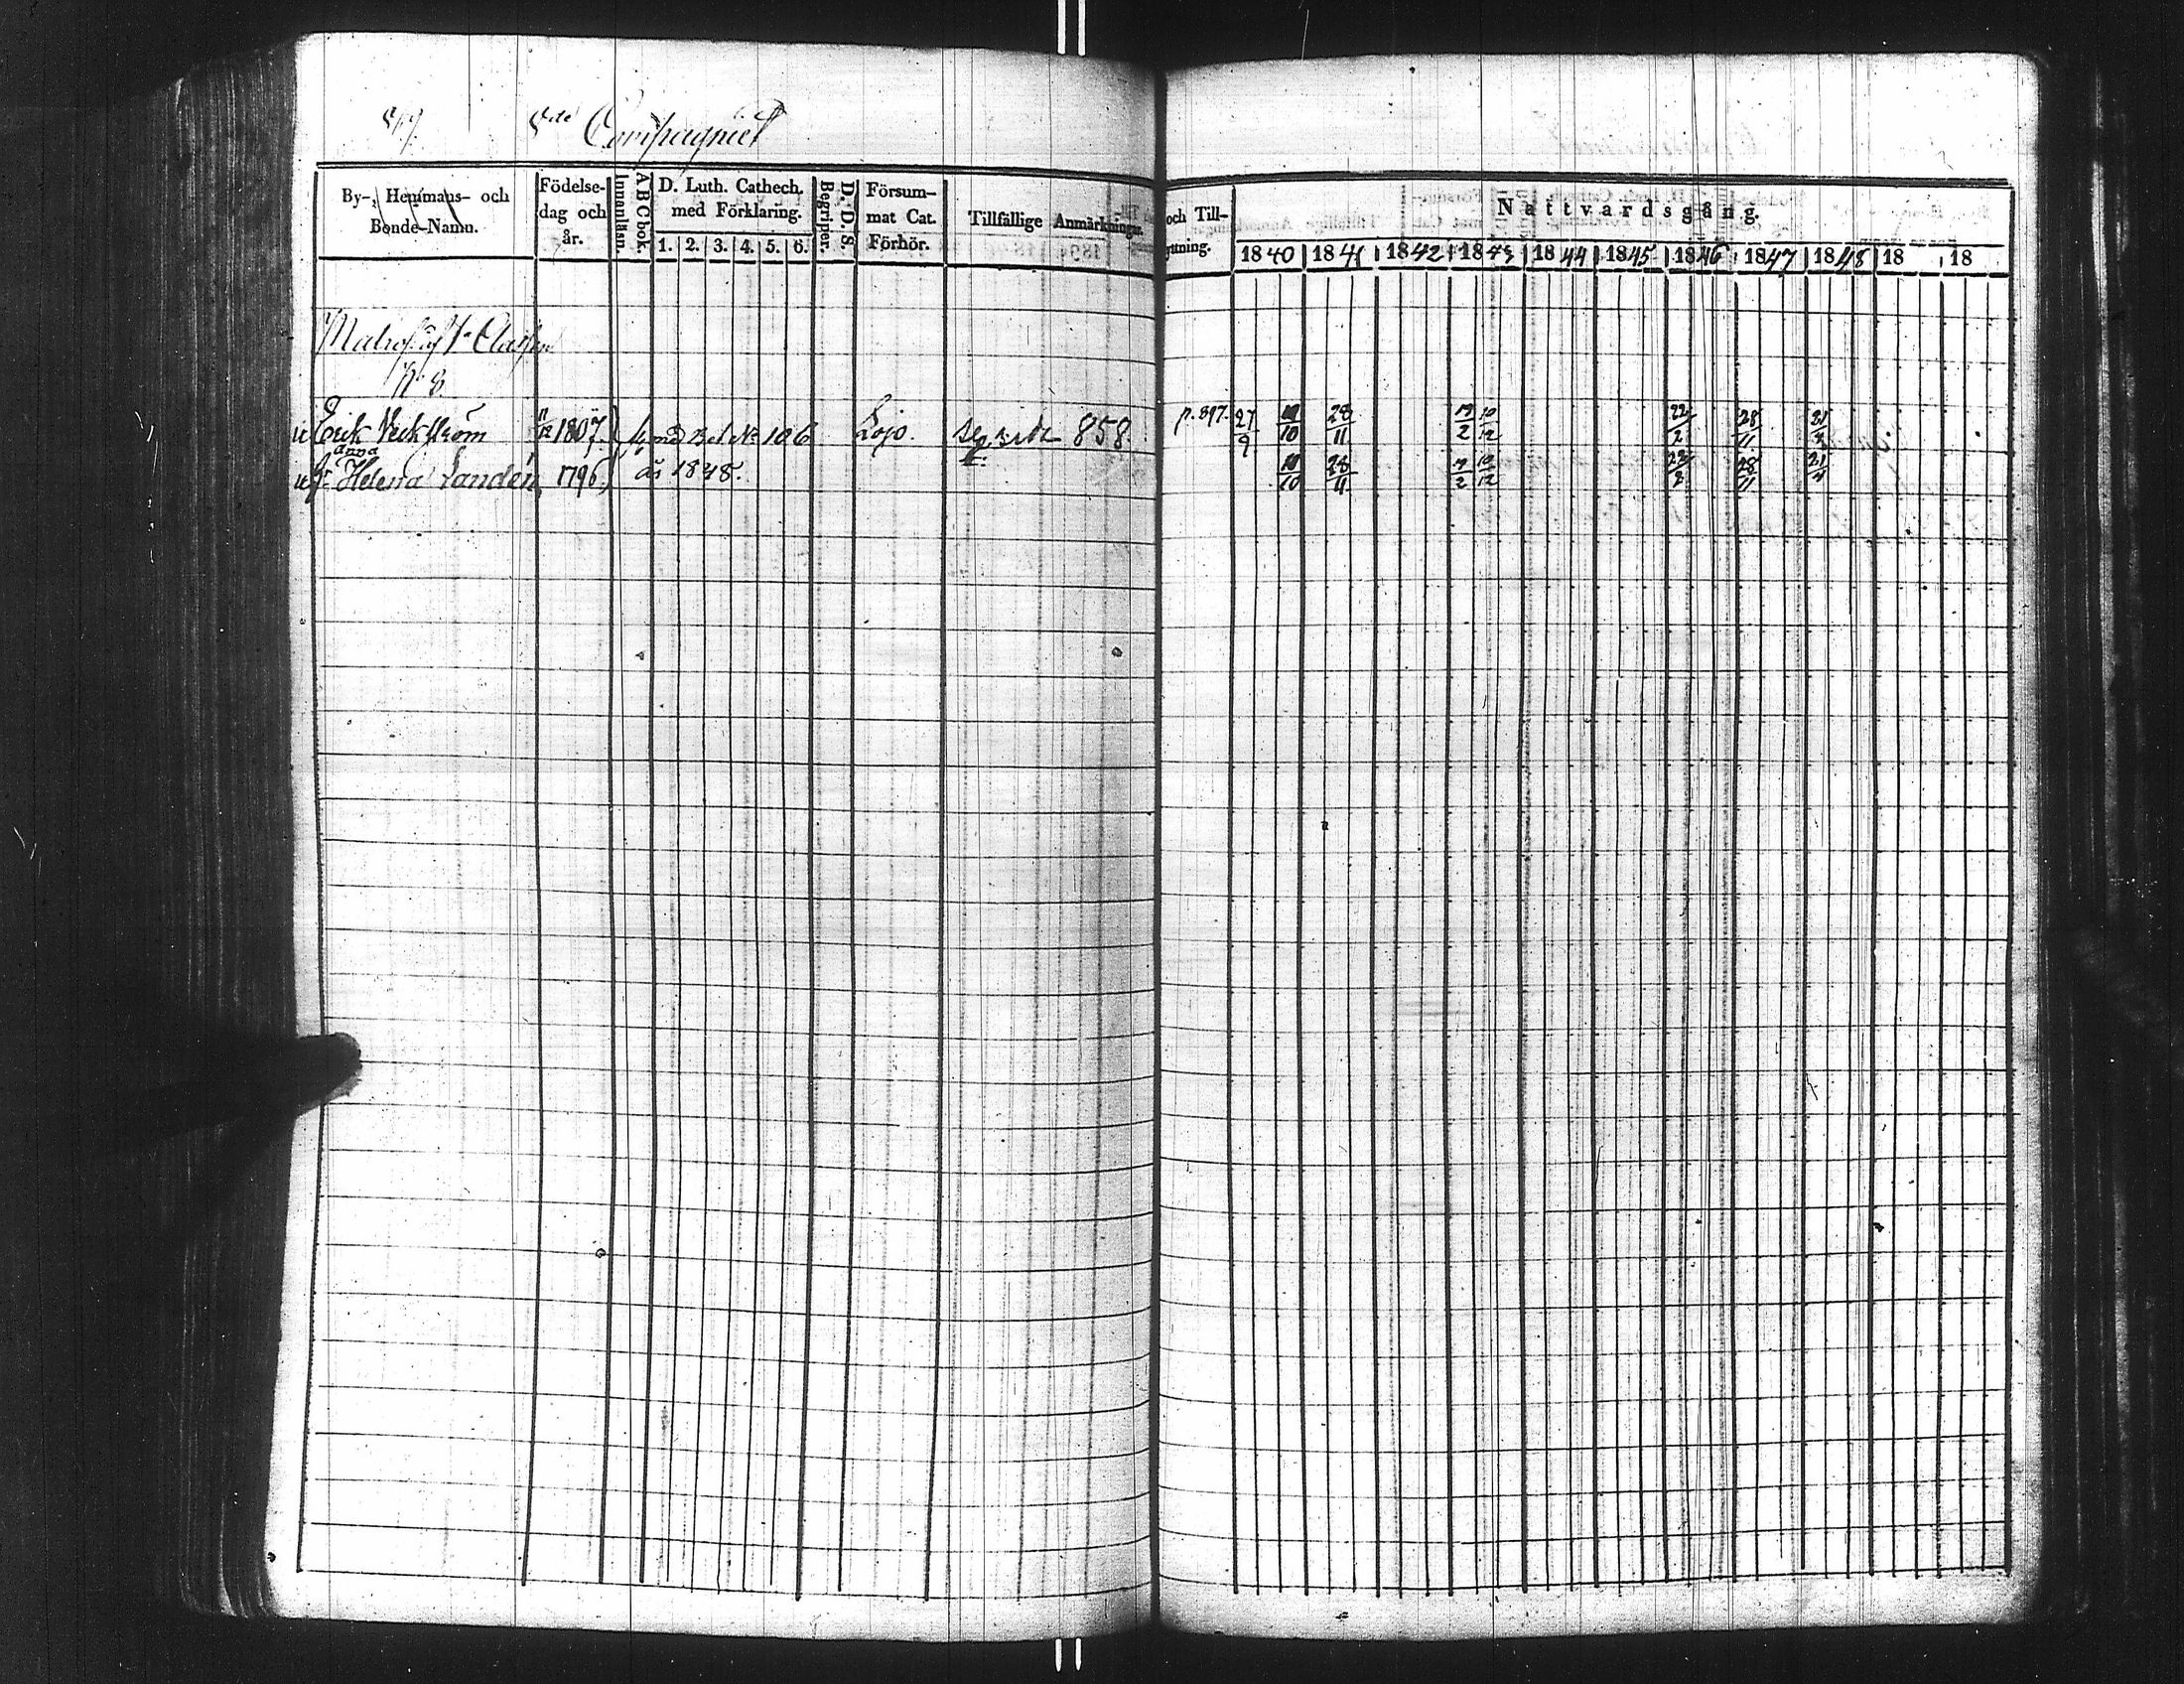 Compagniet
By-, Hemmans- och Bonde-Namn.
Födelse-dag och år.
Innanläsn.
A B C bok.
D. Luth. Cathech. med Förklaring.
1. 2. 3. 4. 5. 6.
Begriper.
D. D. S.
Försum-mat Cat. Förhör.
Tillfällige Anmärkningar.
och Till-
yttning.
Nattvardsgång.
1840 1841 1842 1843 1844 1845 1846 1847 1848 18 18
Matros af 1a Classen
No 8
Erik Veckström 1807 med Bet No 106 Lojo. se sida 858 p. 897. 27/9 10/10 28/11 19/2 10/12 22/2 28/11 21/4
anna
Helena Landén 1796 år 1848. 10/10 28/11 19/2 10/12 22/2 28/11 21/4